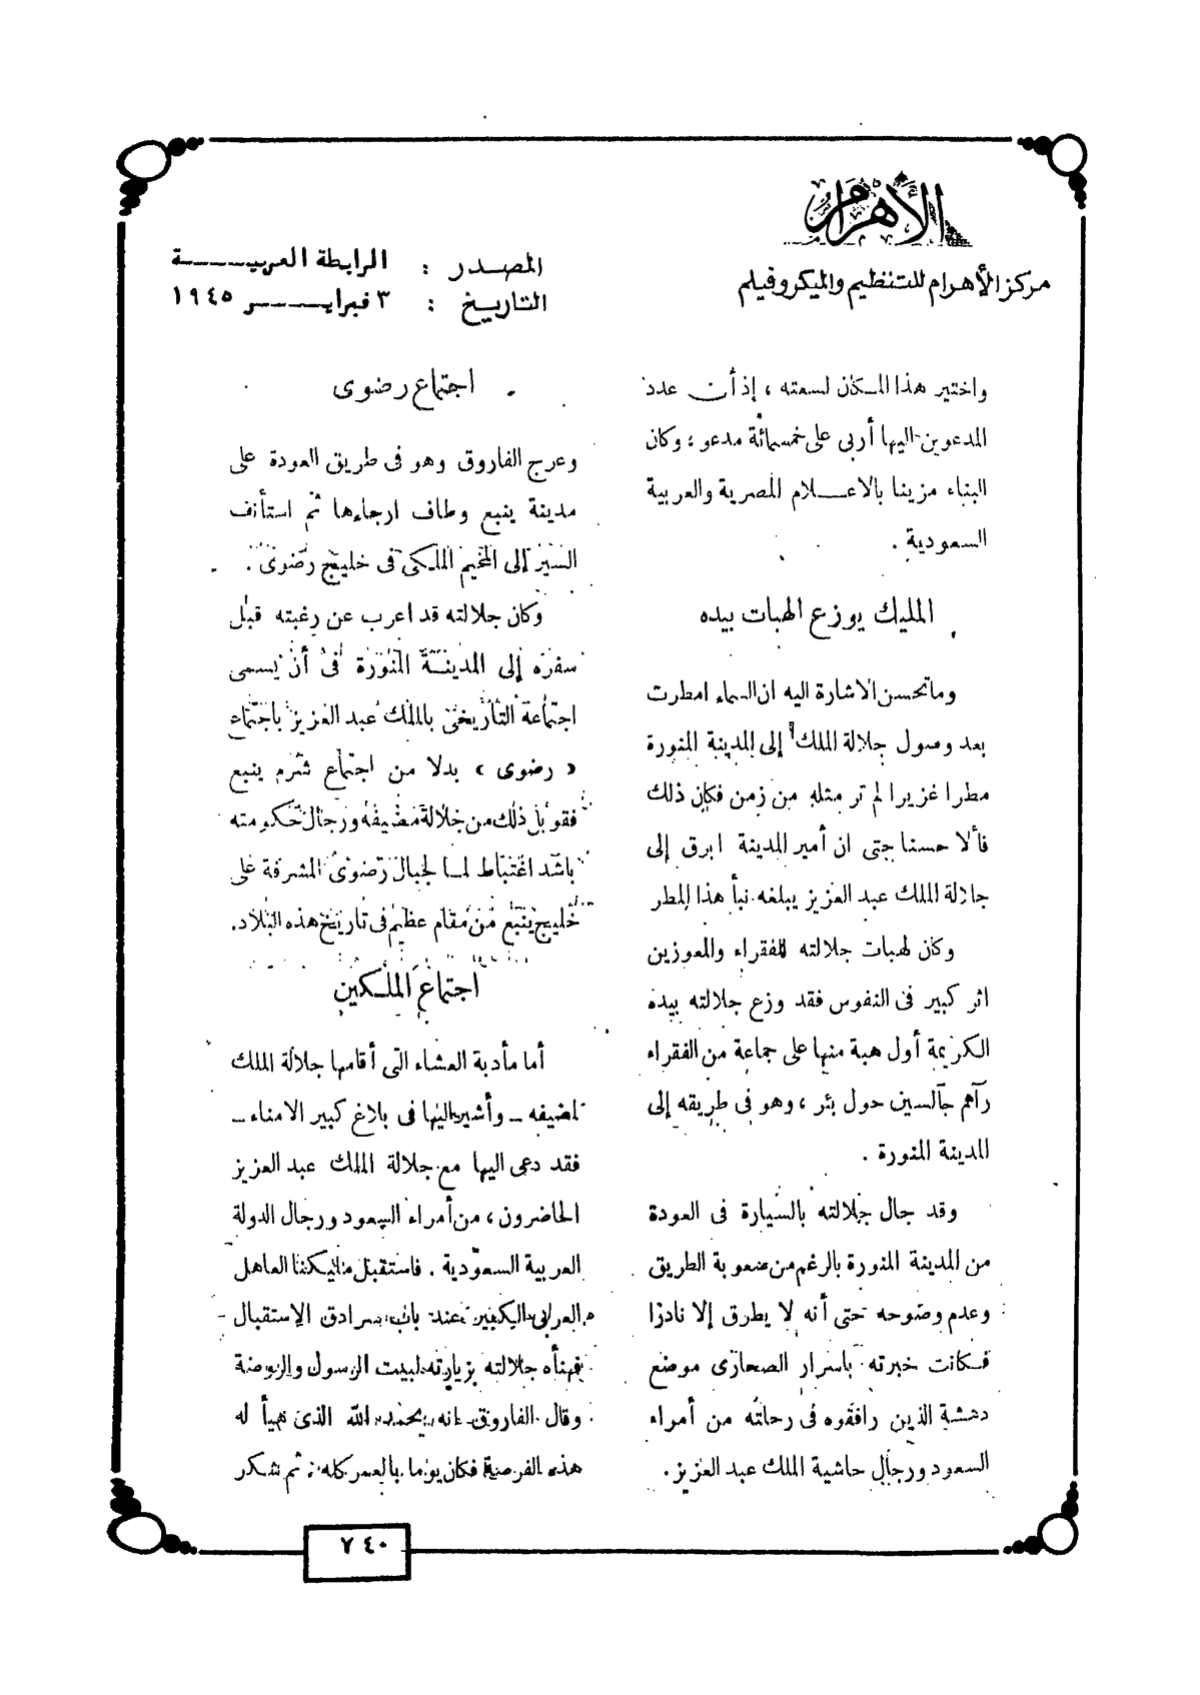 الأهرام
مركز الأهرام للتنظيم والميكروفيلم
المصدر : الرابطة العربية
التاريخ : ٣ فبراير ١٩٤٥
واختير هذا المكان لسعته ، إذ أن عدد
المدعوين اليها أربى على خمسمائة مدعو ؛ وكان
البناء مزينا بالاعلام المصرية والعربية
السعودية .
المليك يوزع الهبات بيده
وما تحسن الاشارة اليه ان السماء امطرت
بعد وصول جلالة الملك إلى المدينة المنورة
مطرا غزيرا لم تر مثله من زمن فكان ذلك
فألا حسنا حتى ان أمير المدينة ابرق إلى
جلالة الملك عبد العزيز يبلغه نبأ هذا المطر
وكان لهبات جلالته للفقراء والمعوزين
اثر كبير فى النفوس فقد وزع جلالته بيده
الكريمة أول هبة منها على جماعة من الفقراء
رآهم جالسين حول بئر ، وهو فى طريقه إلى
المدينة المنورة .
وقد جال جلالته بالسيارة فى العودة
من المدينة المنورة بالرغم من صعوبة الطريق
وعدم وضوحه حتى أنه لا يطرق إلا نادرا
فكانت خبرته باسرار الصحارى موضع
دهشة الذين رافقوه فى رحلته من أمراء
السعود ورجال حاشية الملك عبد العزيز .
اجتماع رضوى
وعرج الفاروق وهو فى طريق العودة على
مدينة ينبع وطاف ارجاءها ثم استأنف
السير إلى المخيم الملكى فى خليج رضوى .
وكان جلالته قد اعرب عن رغبته قبل
سفره إلى المدينة المنورة فى أن يسمى
اجتماعه التاريخى بالملك عبد العزيز باجتماع
« رضوى » بدلا من اجتماع شرم ينبع
فقوبل ذلك من جلالة مضيفه ورجال حكومته
باشد اغتباط لما لجبال رضوى المشرفة على
خليج ينبع من مقام عظيم فى تاريخ هذه البلاد .
اجتماع الملكين
أما مأدبة العشاء التى أقامها جلالة الملك
لمضيفه – وأشير اليها فى بلاغ كبير الامناء –
فقد دعى اليها مع جلالة الملك عبد العزيز
الحاضرون ، من أمراء السعود ورجال الدولة
العربية السعودية . فاستقبل مليكنا العاهل
العربى الكبير عند باب سرادق الاستقبال
فهنأه جلالته بزيارته لبيت الرسول والروضة
وقال الفاروق انه يحمد الله الذى هيأ له
هذه الفرصة فكان يوما بالعمر كله ; ثم شكر
٧٤٠